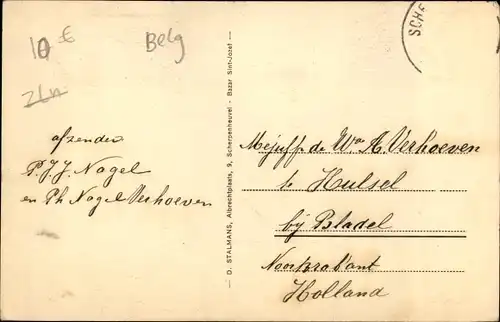 10 €
Belg
SCHE
afzender
P.J.J. Nagel
en Ph Nagel Verhoeven
— D. STALMANS, Albrechtplaats, 9, Scherpenheuvel - Bazar Sint-Jozef —
Mejuff. de Wed A. Verhoeven
te Hulsel
bij Bladel
Noorbrabant
Holland